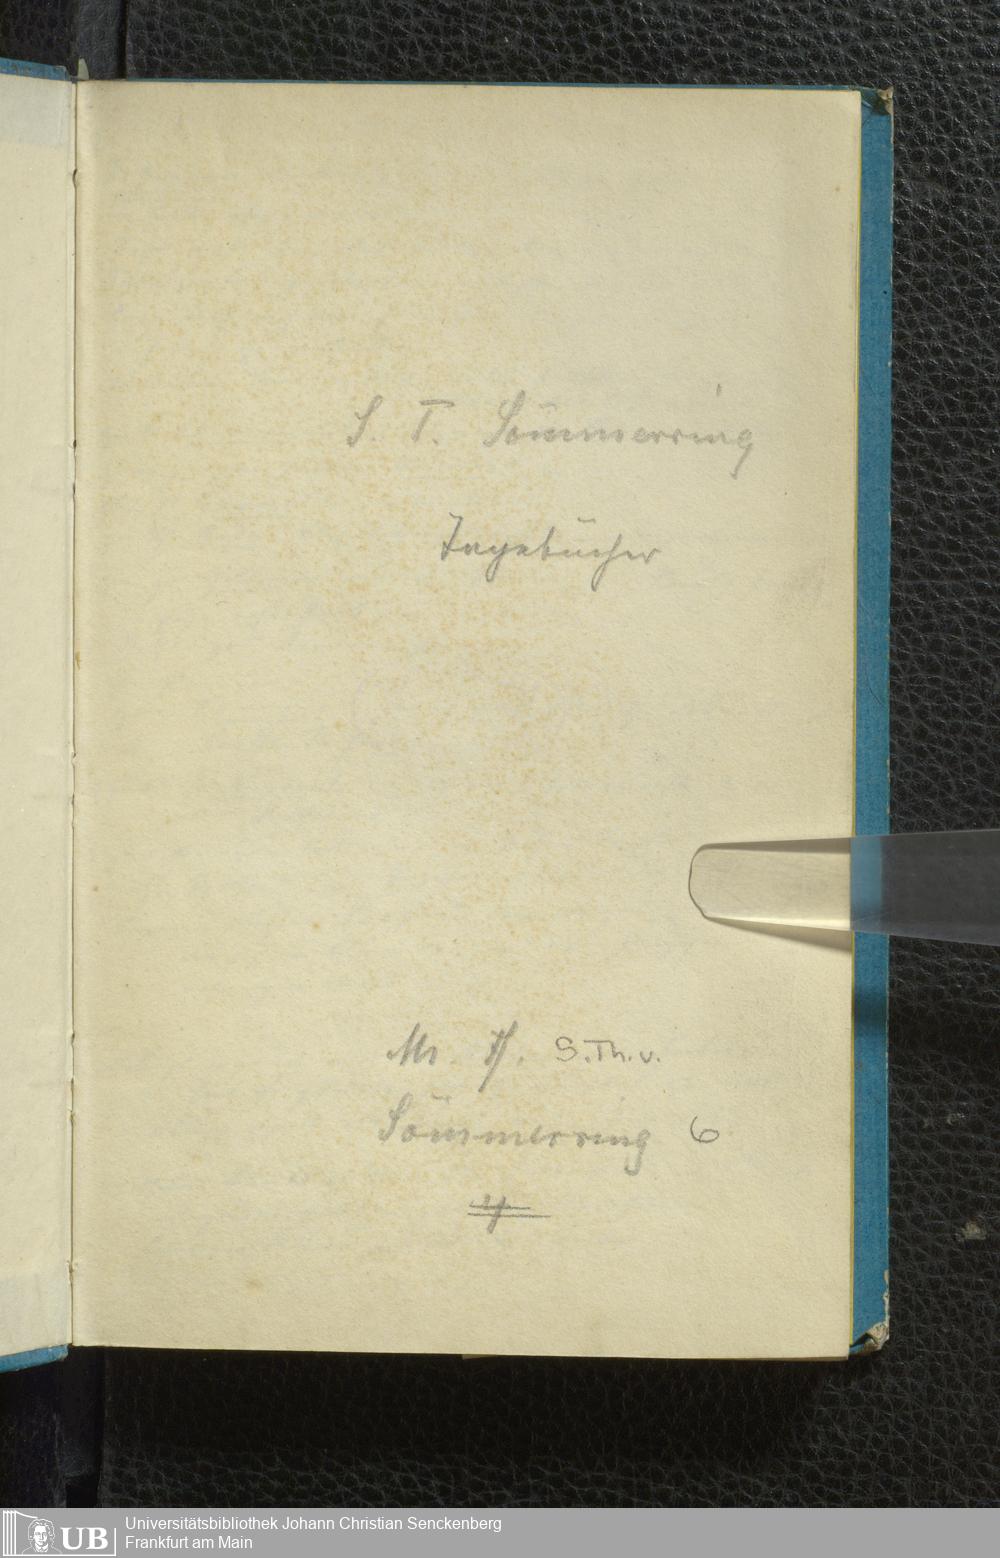 S. T. Sömmerring
Tagebücher
Ms. ff. S. Th. v.
Sömmerring 6
4
UB
Universitätsbibliothek Johann Christian Senckenberg
Frankfurt am Main